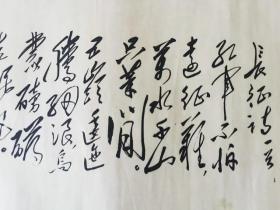 长征诗一首
红军不怕
远征难
万水千山
只等闲。
五岭逶迤
腾细浪乌
蒙磅礴